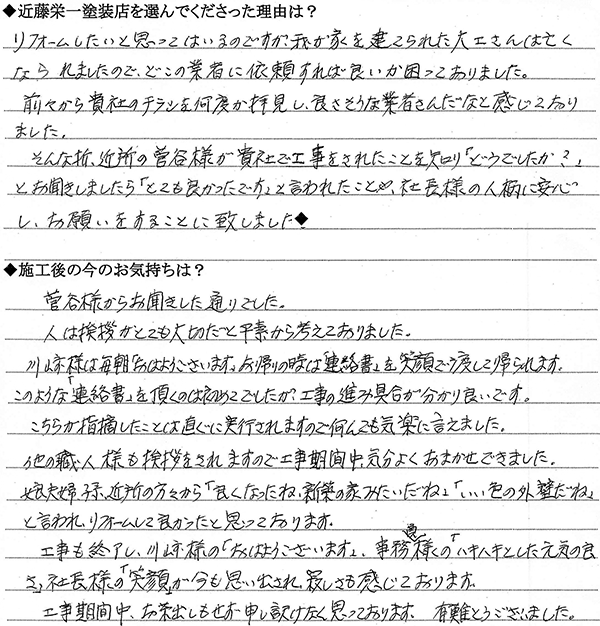 ◆近藤栄一塗装店を選んでくださった理由は？
リフォームしたいと思ってはいるのですが、我が家を建てられた大工さんは亡く
なられましたので、どこの業者に依頼すれば良いか困っておりました。
前々から貴社のチラシを何度か拝見し、良さそうな業者さんだなと感じており
ました。
そんな折、近所の菅谷様が貴社で工事をされたことを知り「どうでしたか？」
とお聞きしましたら「とても良かったです」と言われたことや、社長様の人柄に安心
し、お願いをすることに致しました◆
◆施工後の今のお気持ちは？
菅谷様からお聞きした通りでした。
人は挨拶がとても大切だと平素から考えておりました。
川崎様は毎朝「おはようございます」、お帰りの時は「連絡書」を笑顔で渡して帰られます。
このような「連絡書」を頂くのは初めてでしたが、工事の進み具合が分かり良いです。
こちらが指摘したことは直ぐに実行されますので何んでも気楽に言えました。
他の職人様も挨拶をされますので工事期間中、気分よくおまかせできました。
娘夫婦、子孫、近所の方々から「良くなったね、新築の家みたいだね」「いい色の外壁だね」
と言われ、リフォームして良かったと思っております。
工事も終了し、川崎様の「おはようございます」、事務員様の「ハキハキとした元気の良
さ」社長様の「笑顔」が今も思い出され、寂しさも感じております。
工事期間中、お茶出しもせず申し訳けなく思っております。 有難とうございました。